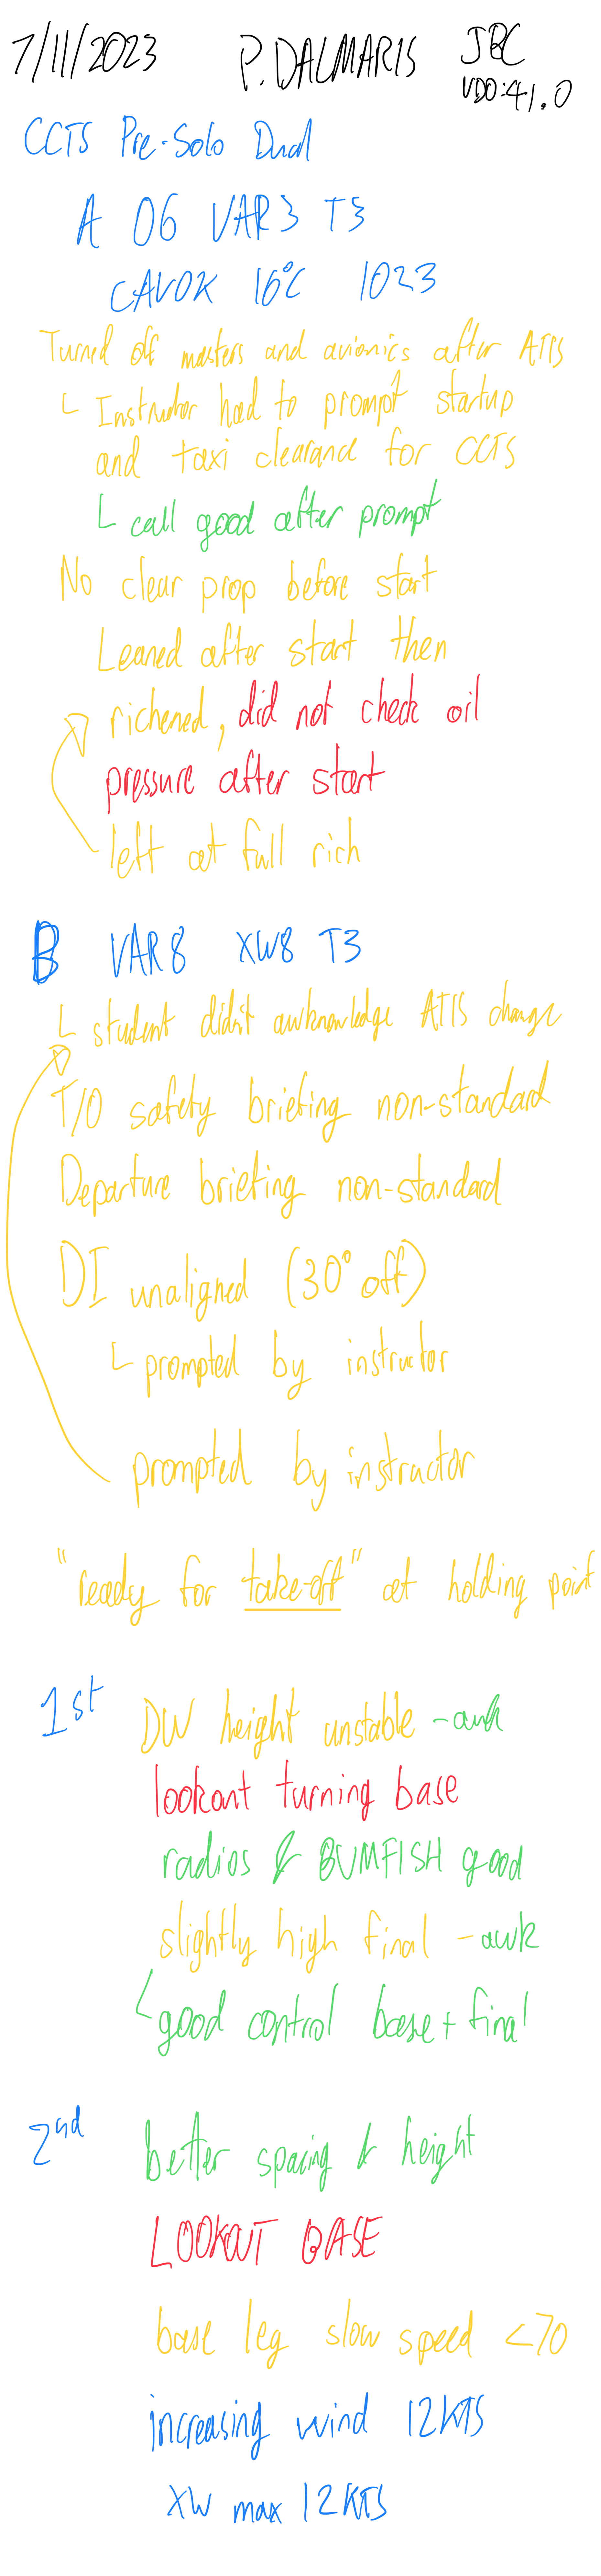 7/11/2023 P. DALMARIS JBC
VDO: 41.0
CCTS Pre-Solo Dual
A 06 VAR3 T3
CAVOK 16°C 1023
Turned off masters and avionics after ATIS
└ Instructor had to prompt startup
and taxi clearance for CCTS
└ call good after prompt
No clear prop before start
Leaned after start then
richened, did not check oil
pressure after start
left at full rich
B VAR8 XW8 T3
└ student didn't awknowledge ATIS change
T/O safety briefing non-standard
Departure briefing non-standard
DI unaligned (30° off)
└ prompted by instructor
prompted by instructor
"ready for take-off" at holding point
1st DW height unstable - awk
lookout turning base
radios & BUMFISH good
slightly high final - awk
└ good control base + final
2nd better spacing & height
LOOKOUT BASE
base leg slow speed <70
increasing wind 12KTS
XW max 12KTS